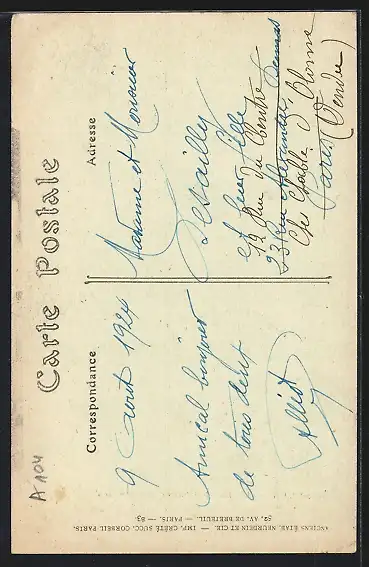 Carte Postale
Correspondance
Adresse
9 août 1924
Amical bonjour
de tous deux
Madame et Monsieur
Desailly
et leur fille
12 Rue du Centre
23 Rue
Les Sables d'Olonne
Paris (Vendée)
A 104
ANCIENS ÉTAB. NEURDEIN ET CIE. — IMP. CRÉTÉ SUCC. CORBEIL. PARIS.
52, AV. DE BRETEUIL. — PARIS. — 83.